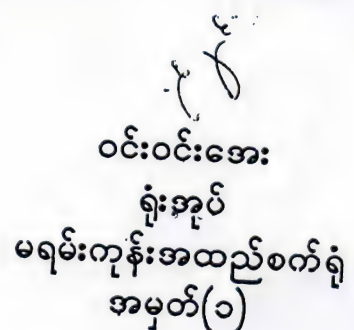 ဝင်းဝင်းအေး
ရုံးအုပ်
မရမ်းကုန်းအထည်စက်ရုံ
အမှတ်(၁)